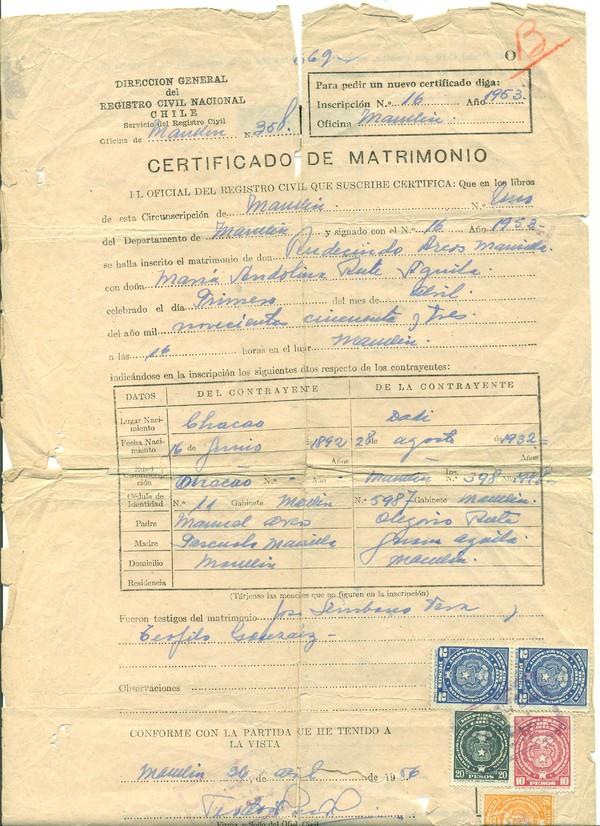 569
O B
DIRECCION GENERAL
del
REGISTRO CIVIL NACIONAL
CHILE
Servicio del Registro Civil
Oficina de Maullin N.º 358.
Para pedir un nuevo certificado diga:
Inscripción N.º 16 Año 1953.
Oficina Maullin.
CERTIFICADO DE MATRIMONIO
EL OFICIAL DEL REGISTRO CIVIL QUE SUSCRIBE CERTIFICA: Que en los libros
de esta Circunscripción de Maullin. N.º
del Departamento de Maullin y signado con el N.º 16 Año 1953-
se halla inscrito el matrimonio de don Rudecindo Arcos Mansilla.
con doña María Aguila.
celebrado el día Primero del mes de Abril.
del año mil novecientos cincuenta y tres.
a las 16 horas en el lugar Maullin.
indicándose en la inscripción los siguientes datos respecto de los contrayentes:
DATOS DEL CONTRAYENTE DE LA CONTRAYENTE
Lugar Nacimiento Chacao
Fecha Nacimiento 16 de Junio de 1892 Años 28 de agosto de 1932- Años
Chacao N.º - Maullin 398
Cédula de Identidad N.º 11 Gabinete Maullin N.º 5987 Gabinete Maullin.
Padre Manuel Arcos
Madre Pascuala Mansilla
Domicilio Maullin Maullin.
Residencia
(Tárjense las menciones que no figuren en la inscripción)
Fueron testigos del matrimonio José Vera y
Teofilo González-
Observaciones
CONFORME CON LA PARTIDA QUE HE TENIDO A
LA VISTA
Maullin 26, de abril de 1956
2 PESOS 2
2 PESOS 2
20 PESOS 20
10 PESOS 10